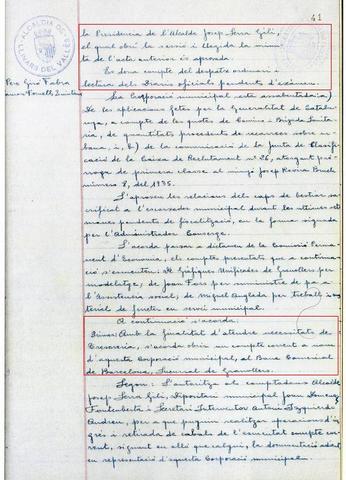 41
ALCALDIA DE
LLINARS DEL VALLÈS
la Presidencia de l'Alcalde Josep Serra Gili,
el qual obrí la sessió i llegida la minu-
ta de l'acta anterior és aprovada.
Es dona compte del despatx ordinari i
lectura dels Diaris oficials pendents d'exàmen.
La Corporació municipal resta assabentada: a)
De les aplicacions fetes per la Generalitat de Catalu-
nya, a compte de les quotes de Camins i Brigada Sanità-
ria, de quantitats procedents de recàrrecs sobre ur-
bana, i, b) de la comunicació de la Junta de Classifi-
cació de la Caixa de Reclutament nº 26, atorgant prò-
rroga de primera classe al minyó Josep Bosch
número 8, del 1935.
S'aproven les relacions dels caps de bestiar sa-
crificat a l'escorxador municipal durant les últimes set-
manes pendents de fiscalització, en la forma signada
per l'Administrador Conserge.
S'acorda passar a dictamen de la Comissió Perma-
nent d'Economia, els comptes presentats que a continua-
ció s'esmenten: de Gràfiques Unificades de Granollers per
modelatge, de Joan Fors per suministre de pa a
l'Assistencia social, de Miquel Anglada per treballs i ma-
terial de fuster en servei municipal.
A continuació s'acorda:
Primer: Amb la finalitat d'atendre necessitats de
Tresoreria, s'acorda obrir un compte corrent a nom
d'aquesta Corporació municipal, al Banc Comercial
de Barcelona, Sucursal de Granollers.
Segon: S'autoritza als comptadants Alcalde
Josep Serra Gili, Dipositari municipal Joan
i Secretari Interventor Antoni Izquierdo
Andreu, per a que puguin realitzar operacions d'in-
grés i retirada de cabals de l'esmentat compte co-
rrent, signant en allò que calgui, la documentació adient
en representació d'aquesta Corporació municipal.